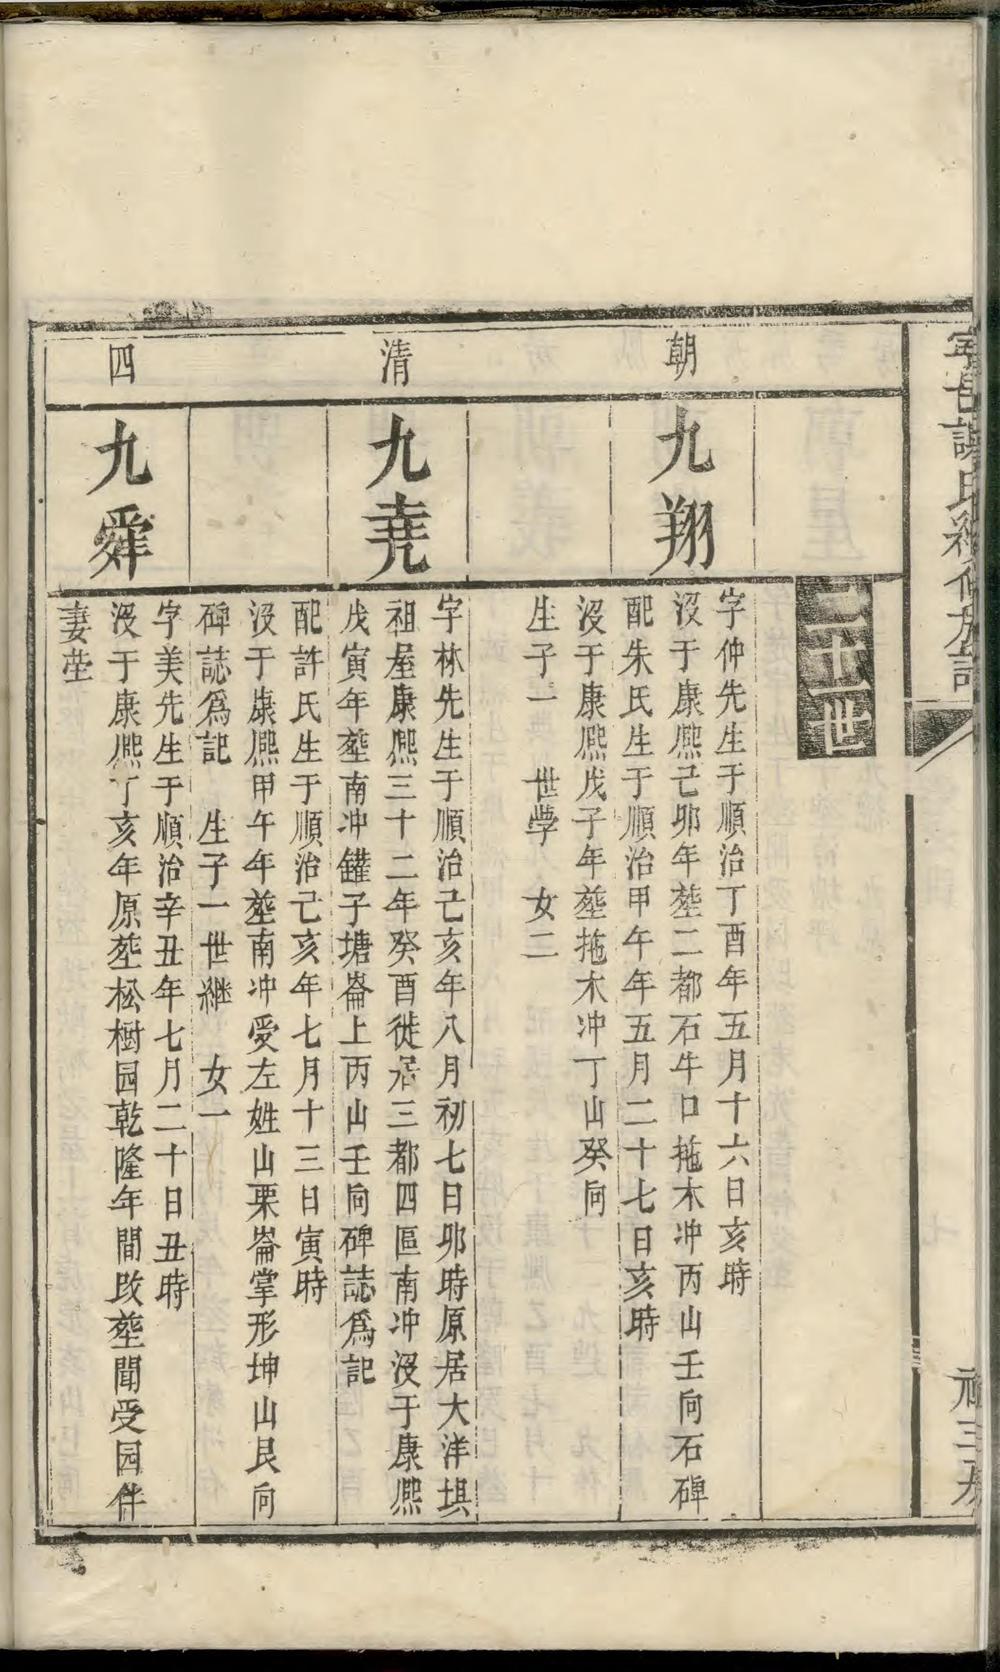 二十一世
朝
九翔
字仲先生于順治丁酉年五月十六日亥時
沒于康熈己卯年塟二都石牛口拖木冲丙山壬向石碑
配朱氏生于順治甲午年五月二十七日亥時
沒于康熈戊子年塟拖木冲丁山癸向
生子一　世學　女二
清
九堯
字林先生于順治己亥年八月初七日卯時原居大洋垻
祖屋康熈三十二年癸酉徙居三都四區南冲沒于康熈
戊寅年塟南冲鑵子塘崙上丙山壬向碑誌為記
配許氏生于順治己亥年七月十三日寅時
沒于康熈甲午年塟南冲愛左姓山栗崙掌形坤山艮向
碑誌為記　生子一世継　女一
四
九舜
字美先生于順治辛丑年七月二十日丑時
沒于康熈丁亥年原塟松樹园乾隆年間改塟聞受园伴
妻塋